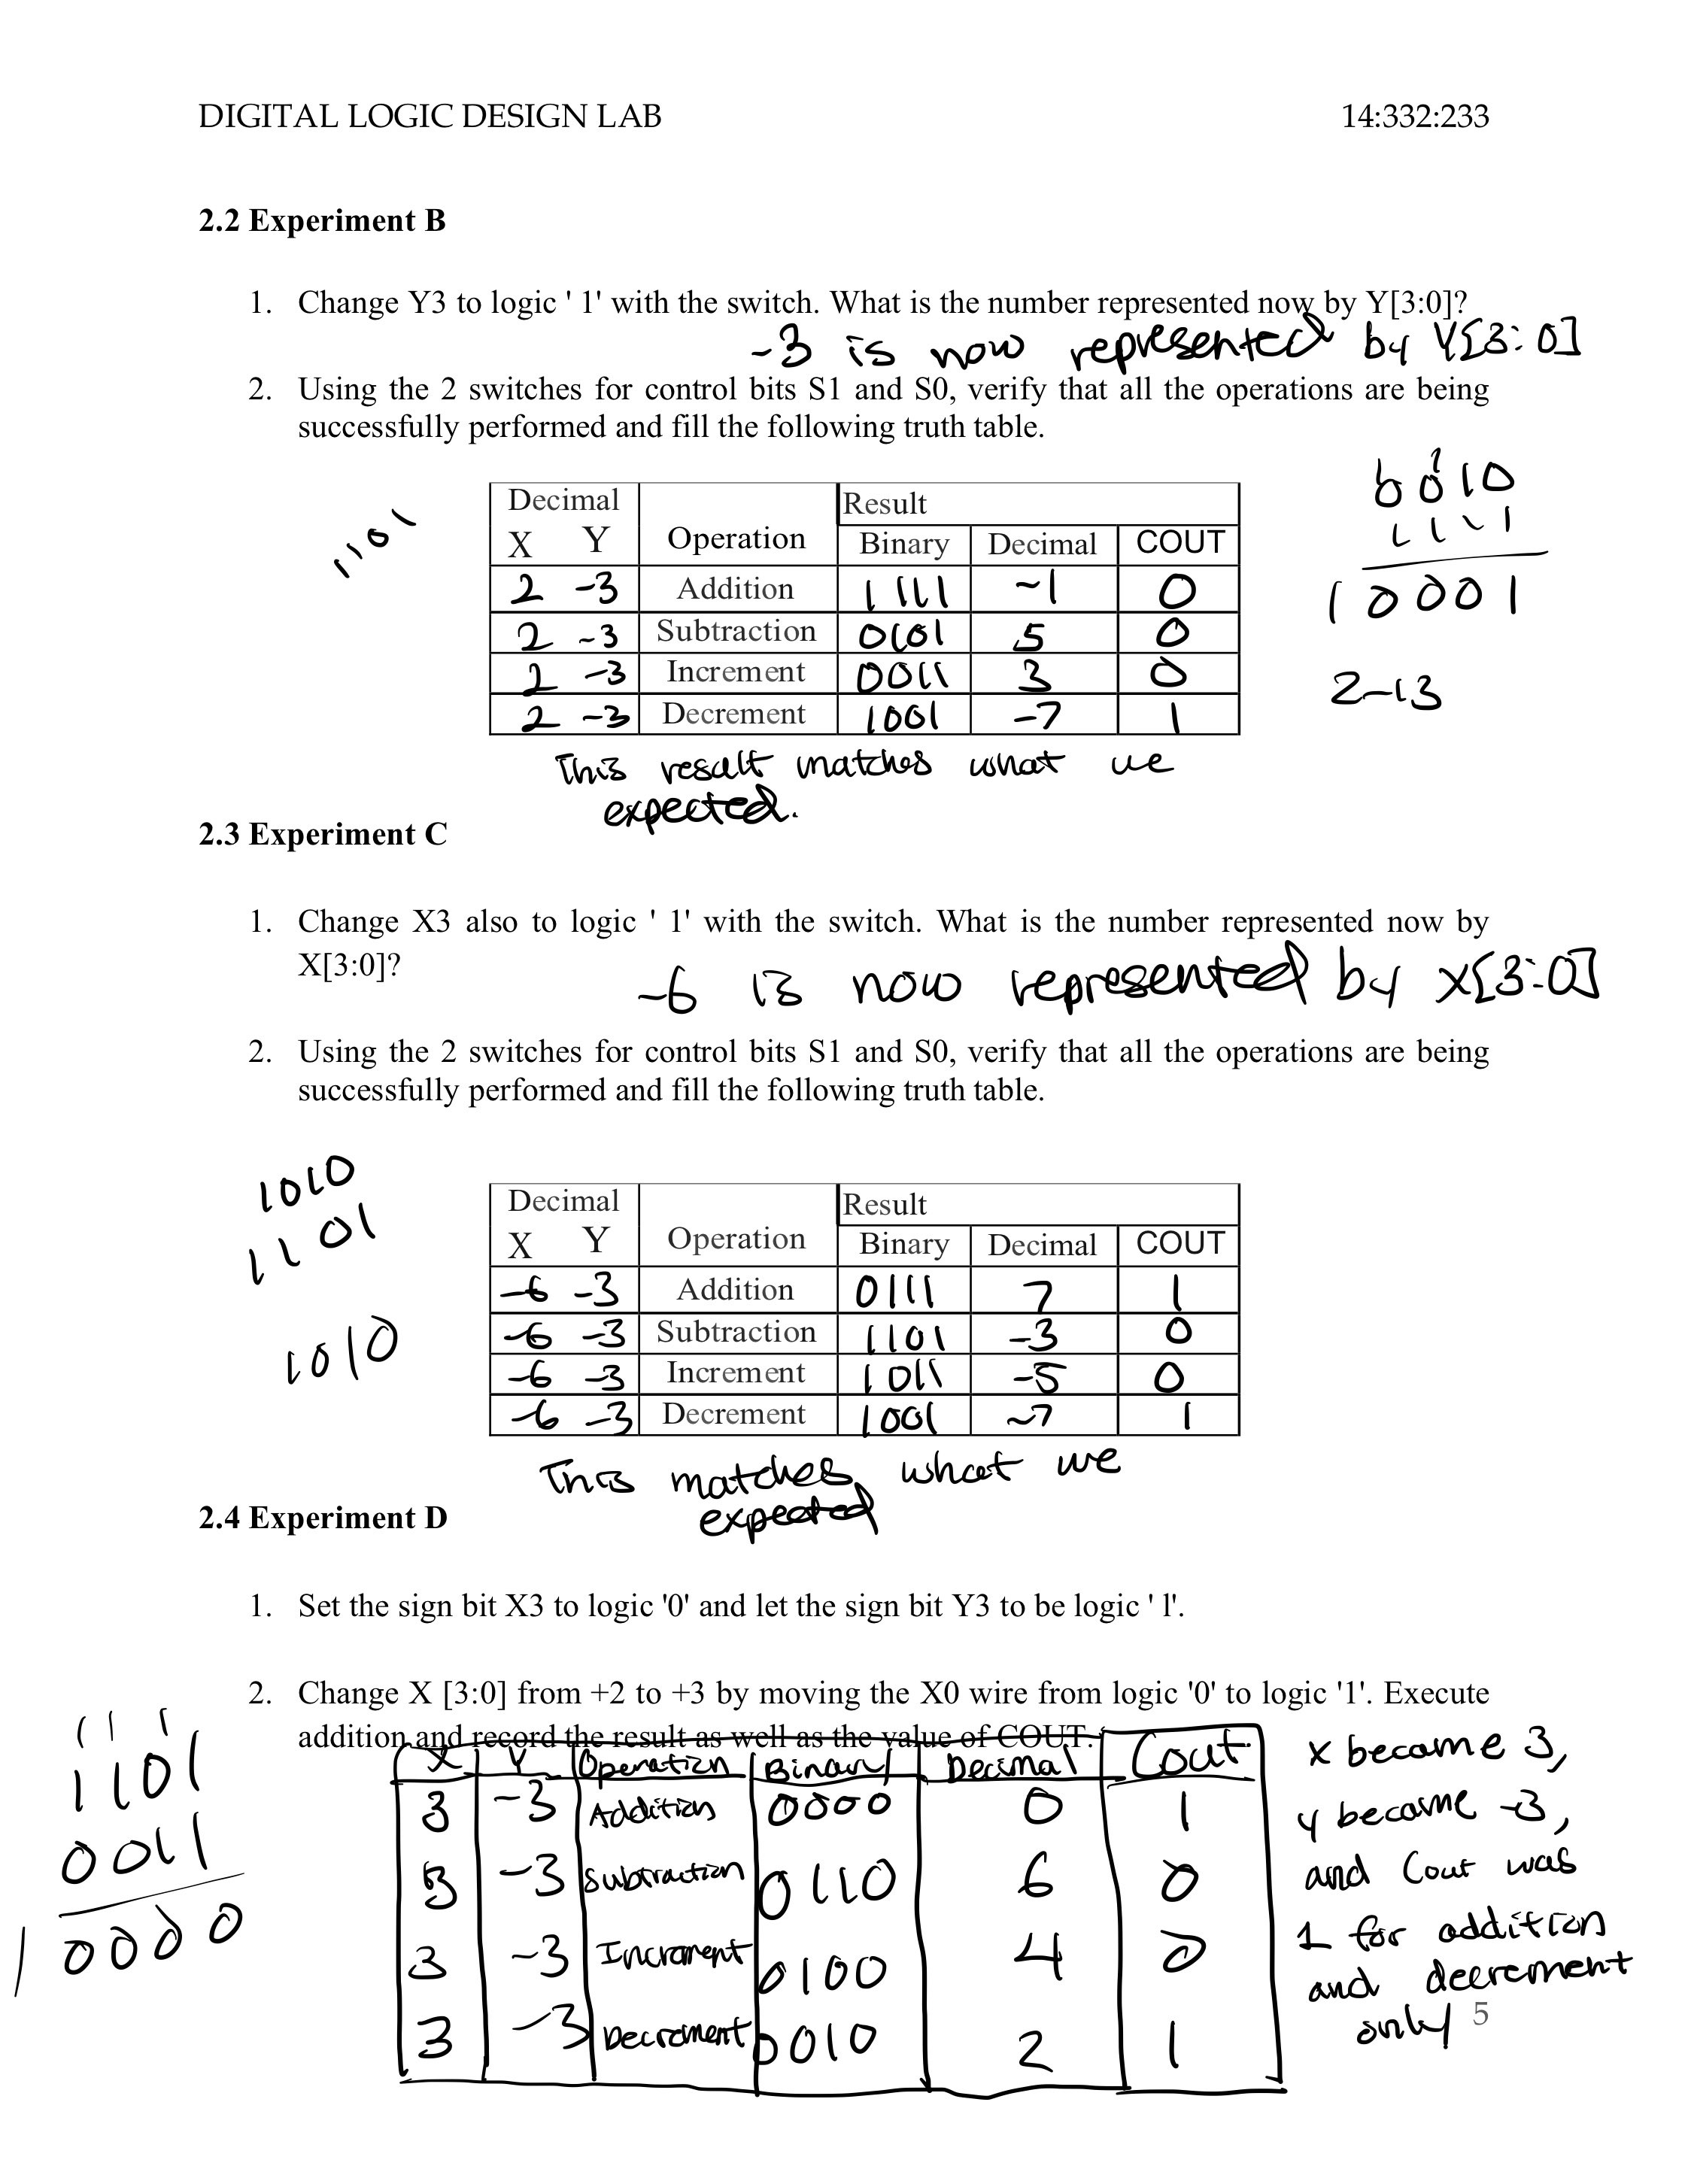 DIGITAL LOGIC DESIGN LAB 14:332:233
2.2 Experiment B
1. Change Y3 to logic ' 1' with the switch. What is the number represented now by Y[3:0]?
-3 is now represented by Y[3:0]
2. Using the 2 switches for control bits S1 and S0, verify that all the operations are being
successfully performed and fill the following truth table.
1101
0010
1111
10001
2-13
Decimal Result
X Y Operation Binary Decimal COUT
2 -3 Addition 1111 -1 0
2 -3 Subtraction 0101 5 0
2 -3 Increment 0011 3 0
2 -3 Decrement 1001 -7 1
This result matches what we
expected.
2.3 Experiment C
1. Change X3 also to logic ' 1' with the switch. What is the number represented now by
X[3:0]?
-6 is now represented by X[3:0]
2. Using the 2 switches for control bits S1 and S0, verify that all the operations are being
successfully performed and fill the following truth table.
1010
1101
1010
Decimal Result
X Y Operation Binary Decimal COUT
-6 -3 Addition 0111 7 1
-6 -3 Subtraction 1101 -3 0
-6 -3 Increment 1011 -5 0
-6 -3 Decrement 1001 -7 1
This matches what we
expected
2.4 Experiment D
1. Set the sign bit X3 to logic '0' and let the sign bit Y3 to be logic ' l'.
2. Change X [3:0] from +2 to +3 by moving the X0 wire from logic '0' to logic '1'. Execute
addition and record the result as well as the value of COUT.
1 1 1
1101
0011
10000
X Y Operation Binary Decimal Cout
3 -3 Addition 0000 0 1
3 -3 Subtraction 0110 6 0
3 -3 Increment 0100 4 0
3 -3 Decrement 0010 2 1
X became 3,
Y became -3,
and Cout was
1 for addition
and decrement
only
5